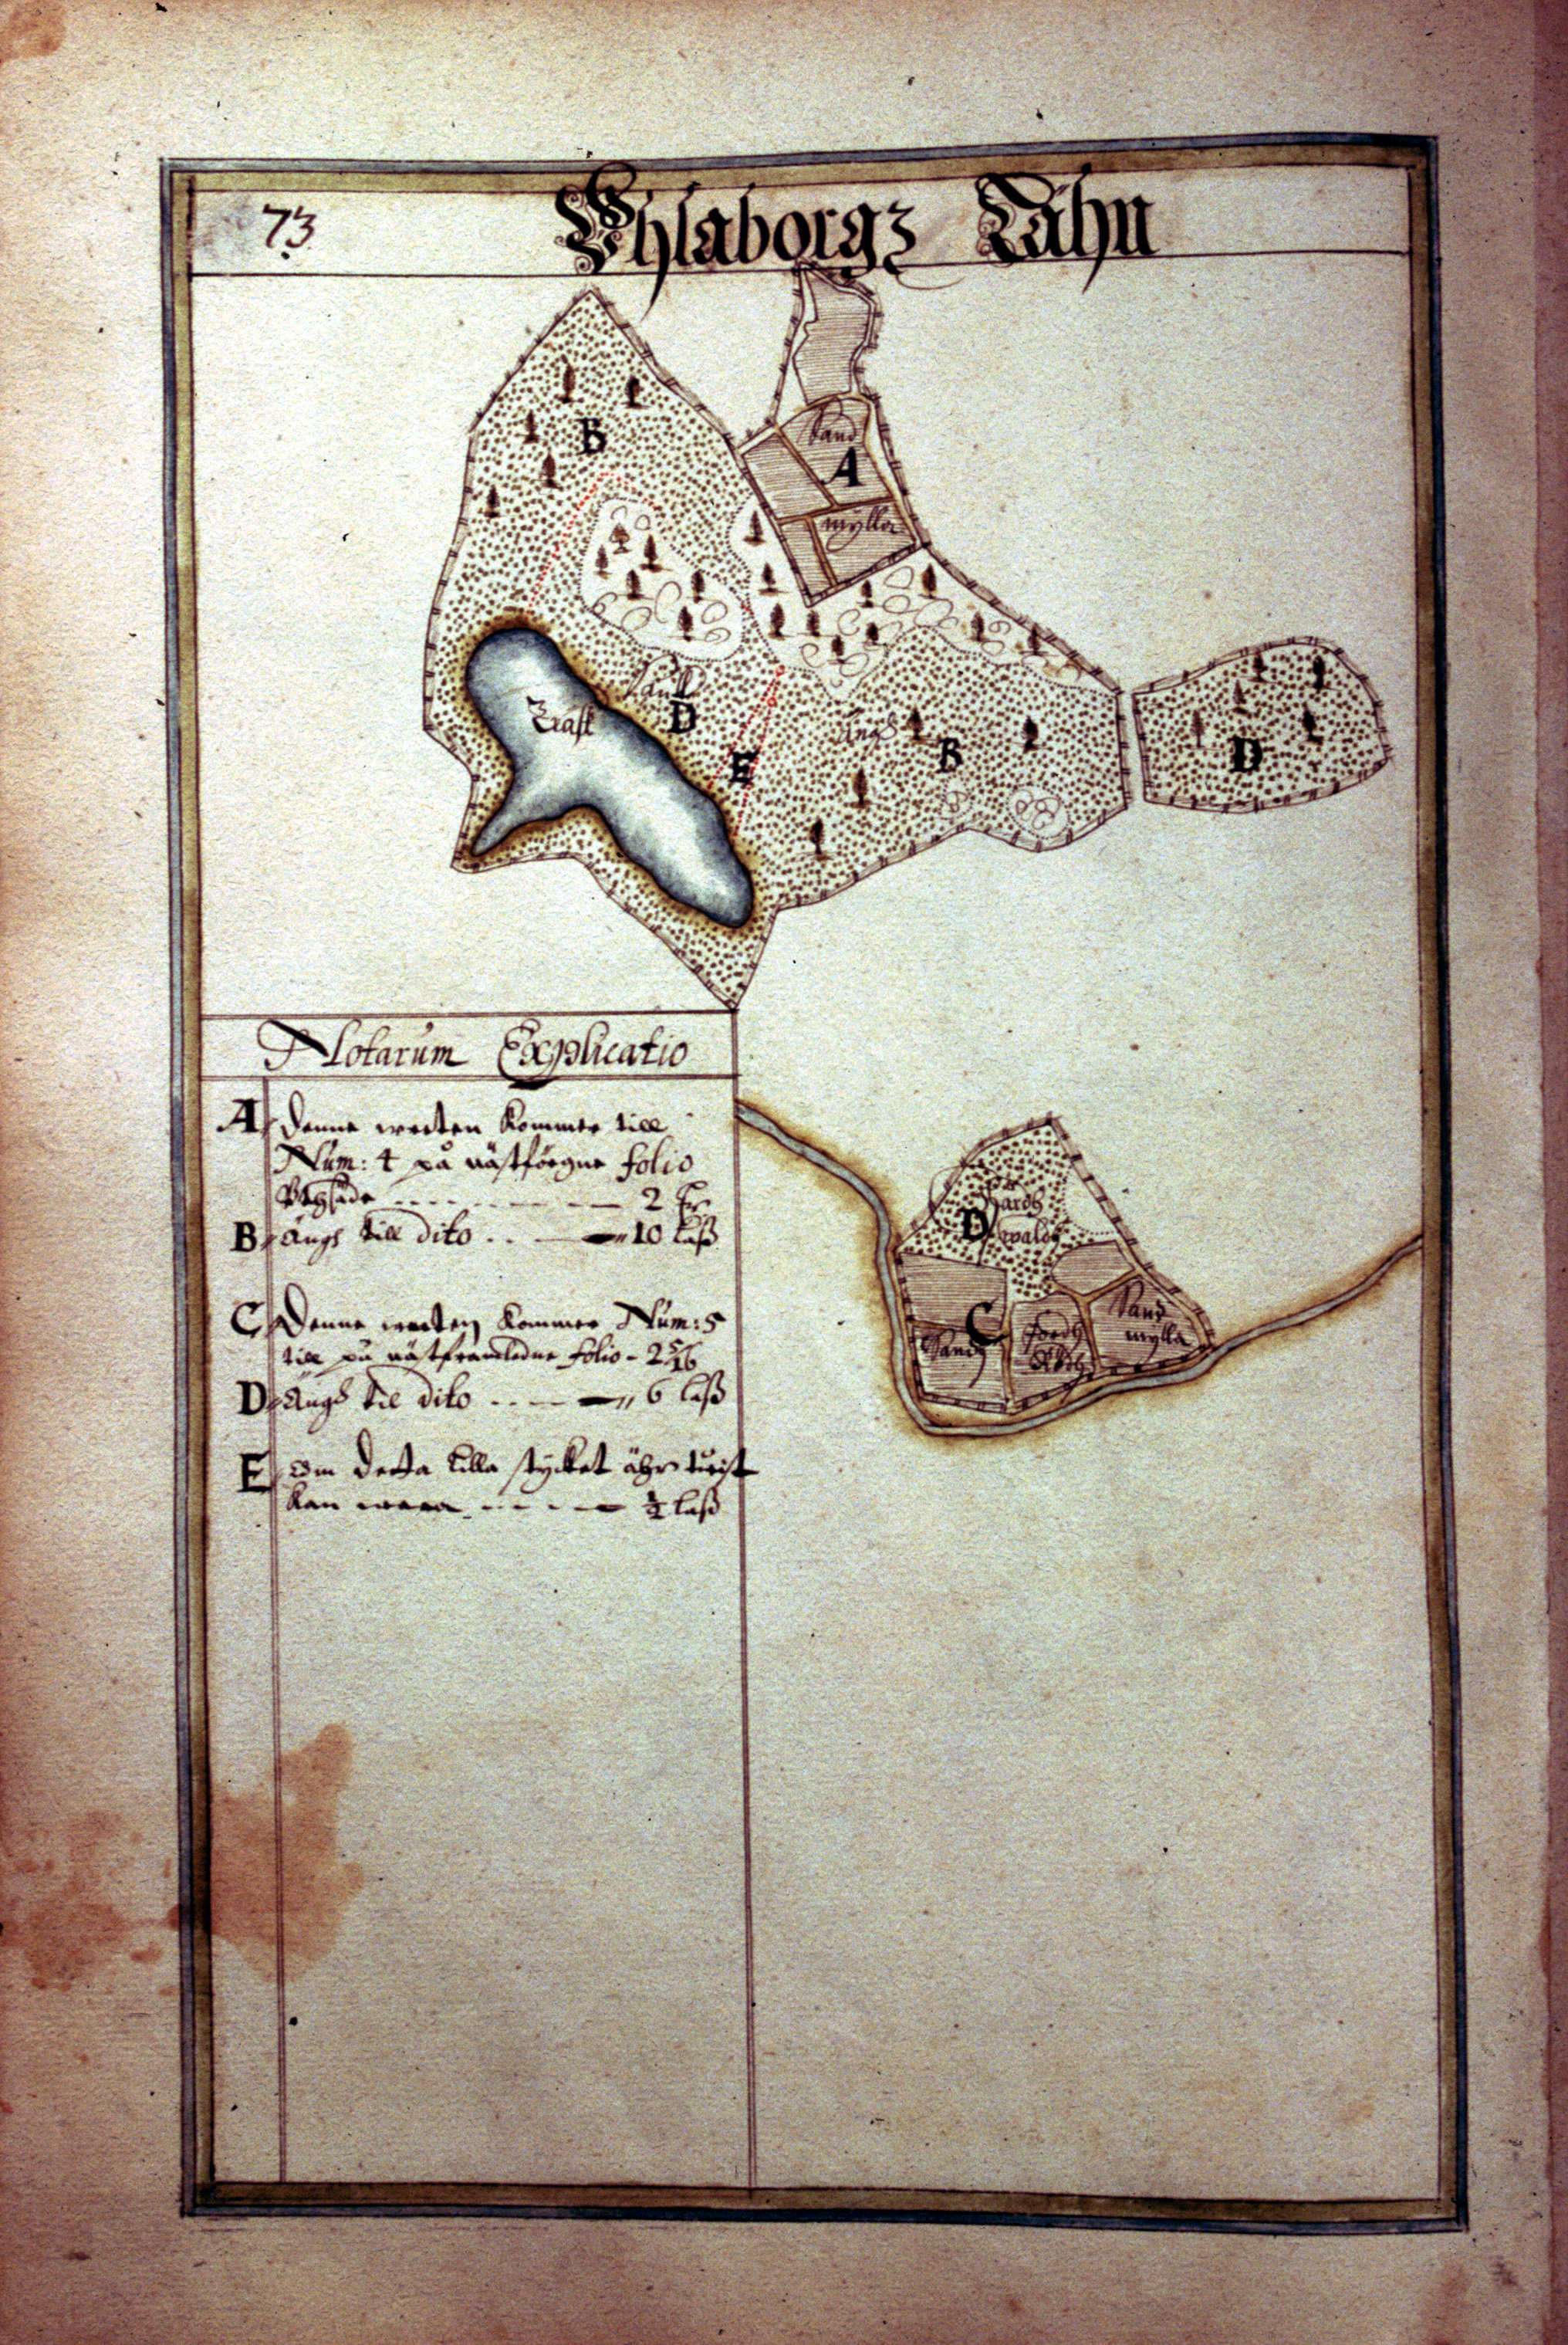 73
Uhlaborgz Lähn
B
Sand
A
mylla
Träsk
D
E
Ängh
B
D
Notarum Explicatio
A Denne werten kommer till
Num: 4 på nästföregne folio
2
B Ängh till dito 10 laß
C Denne werten kommer Num: 5
till på nästframledne folio - 2 5/16
D Ängh til dito 6 laß
E om detta lilla stycket ähr twist
kan wara ½ laß
Hardh
D wald
C
Sand
Sand
mylla